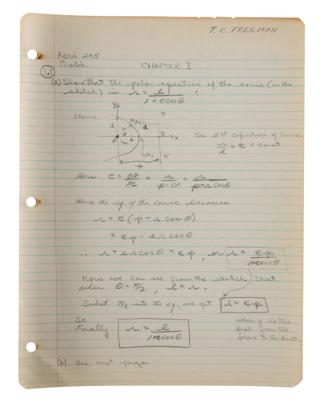 T. C. FREEMAN
Aero 245
Probs.
CHAPTER I
1.
(a) Show that the polar equation of the conic (in the
sketch) is r = l / 1+e cos θ :
See 2nd Definition of Conic:
r/d = e = const
Here e = r / p - r cos θ
Hence the eq. of the conic becomes
r = e (p - r cos θ)
= ep - e r cos θ
∴ r + e r cos θ = ep, or r = ep / 1+e cos θ
Now we can see from the sketch that
when θ = π/2, l = r.
Subst. π/2 into the eq. we get l = ep
So
Finally r = l / 1+e cos θ
where p is the
dist. from the
focus to the
(b) See next page